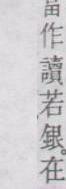 當作讀若銀。在